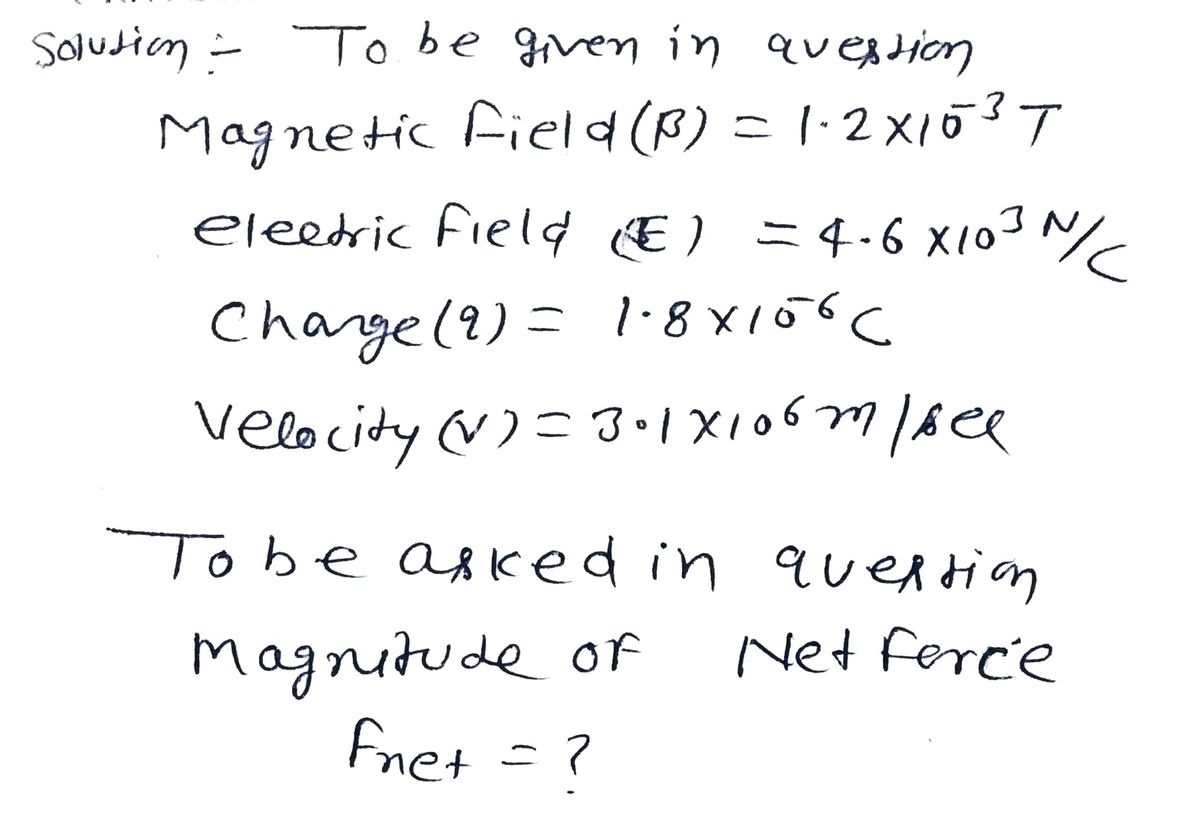 Solution :- To be given in question
Magnetic field (B) = 1.2 x 10⁻³ T
electric field (E) = 4.6 x 10³ N/C
Charge (q) = 1.8 x 10⁻⁶ C
Velocity (v) = 3.1 x 10⁶ m/sec
To be asked in question
Magnitude of Net force
Fnet = ?